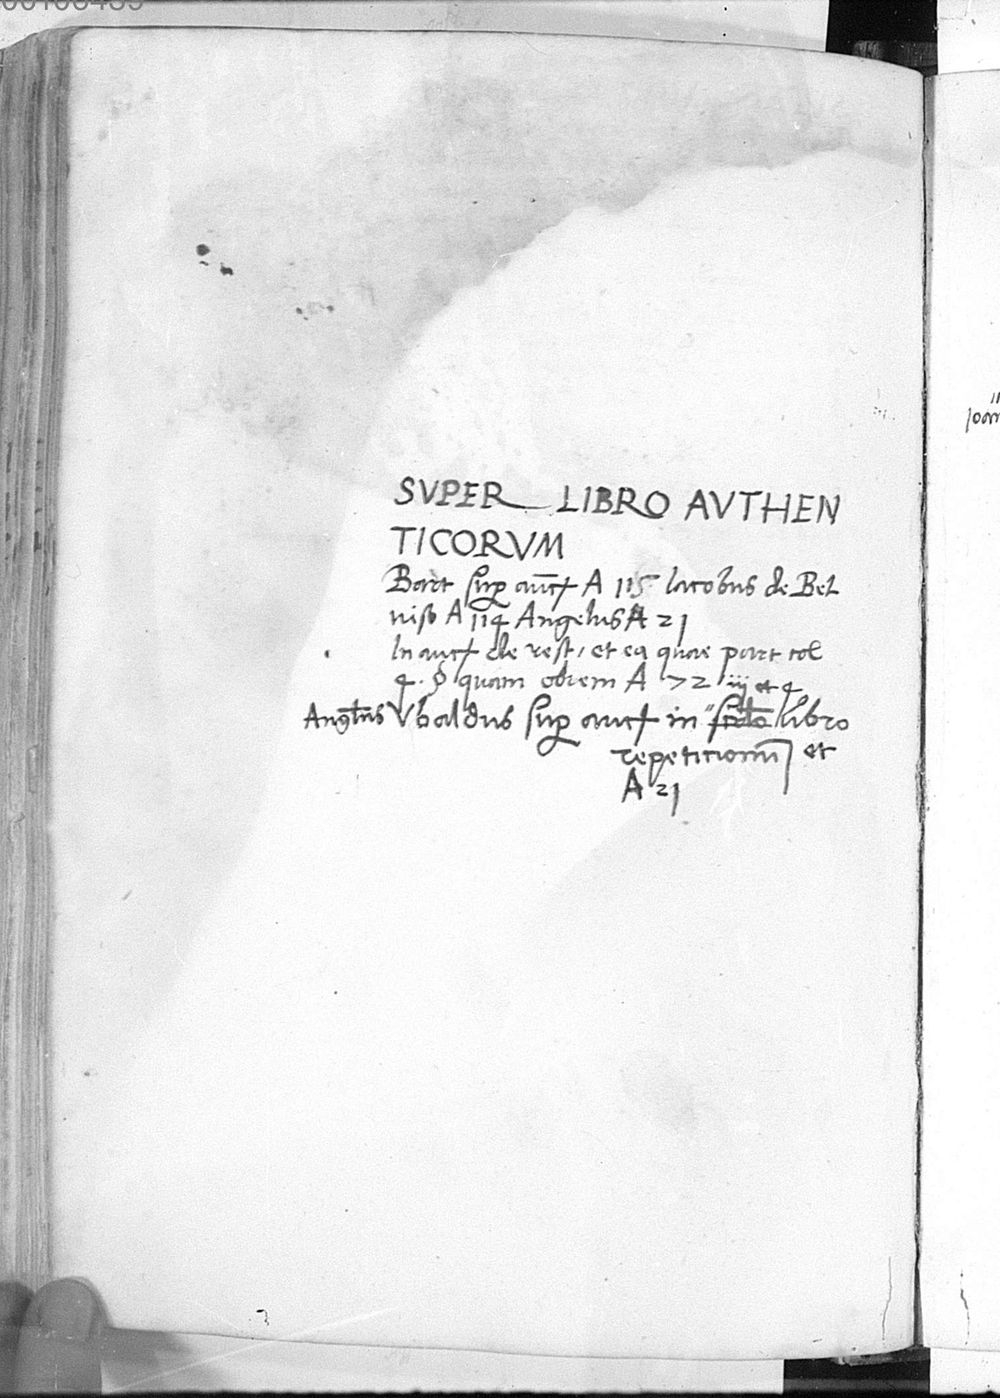 SVPER LIBRO AVTHEN
TICORVM
Bart sup auct A 115 Iacobus de Bel
viso A 114 Angelus A 21
In auct de rest, et ea quae parit col
4. § quam obrem A 72 iiij et 4
Angelus Vbaldus sup auct in libro
repetitionum et
A 21